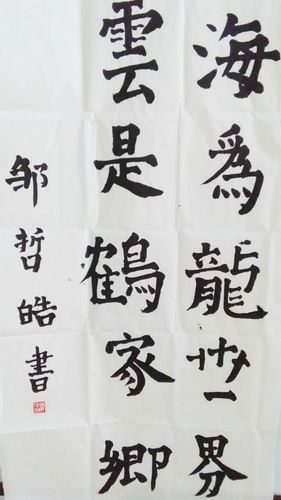 海為龍世界
雲是鶴家鄉
邹哲皓書